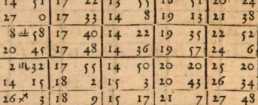 27 0 17 33 14 8 19 13 21 38
8 ♒ 58 17 40 14 22 19 35 22 52
20 45 17 48 14 36 19 57 24 6
2 ♏ 32 17 55 14 50 20 20 25 20
14 15 18 2 15 3 20 43 26 34
26 ♐ 3 18 9 15 17 21 7 27 48